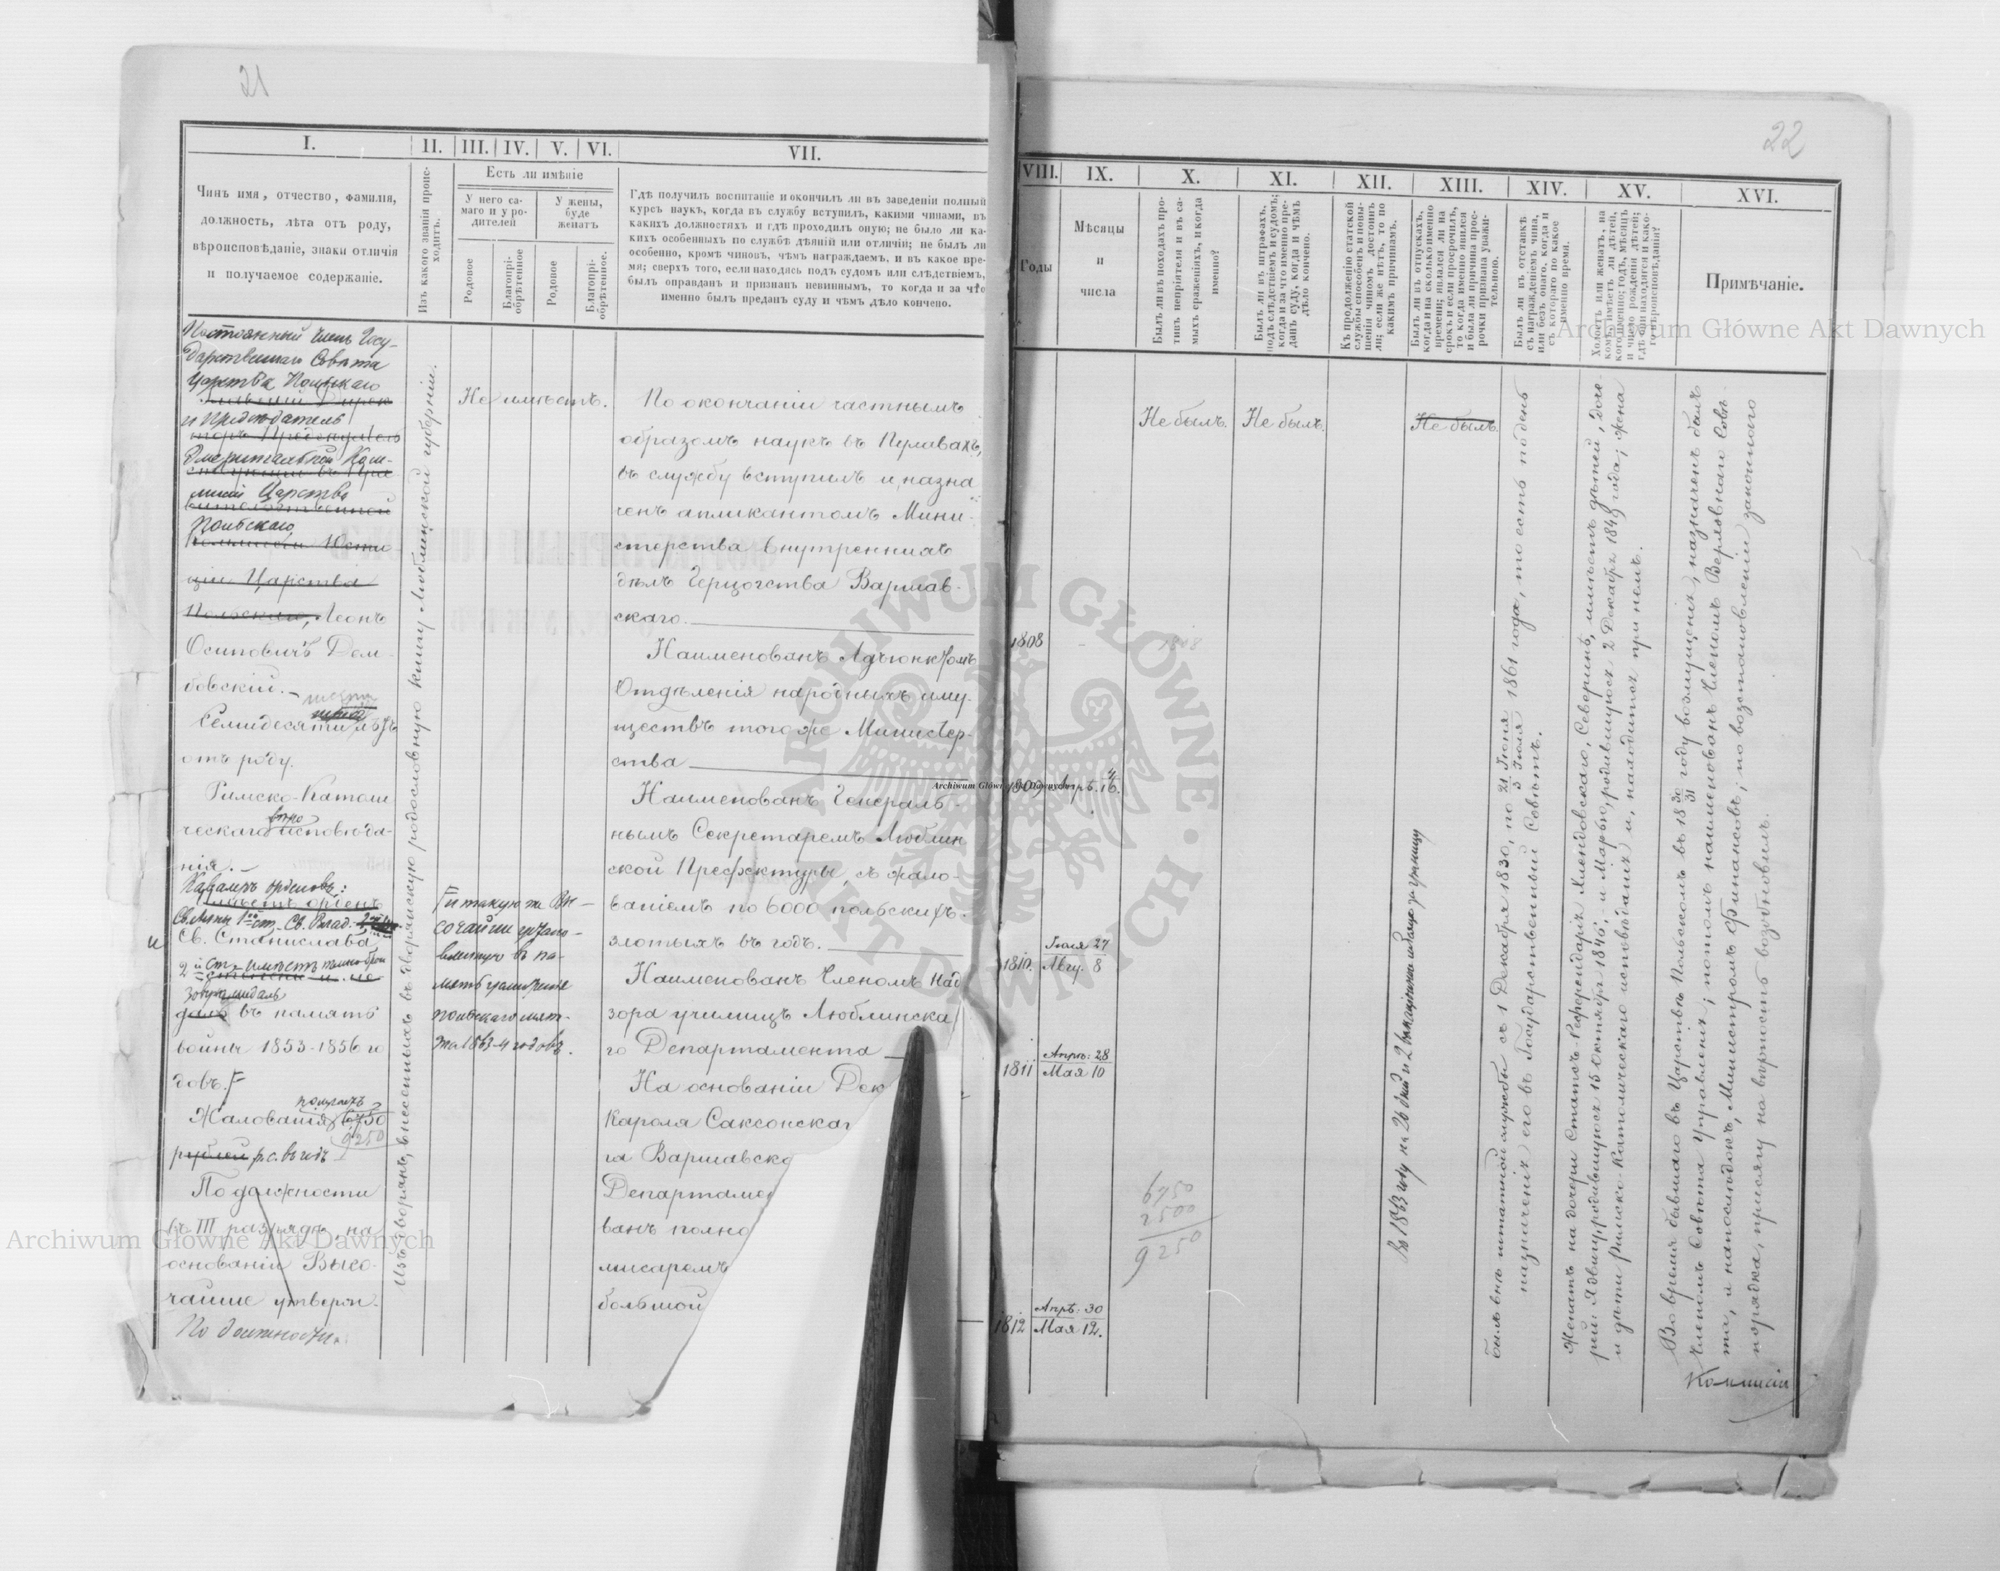 21
I.
II.
III.
IV.
V.
VI.
VII.
Чинъ имя, отчество, фамилія,
должность, лѣта отъ роду,
вѣроисповѣданіе, знаки отличія
и получаемое содержаніе.
Изъ какого званія проис-
ходитъ.
Есть ли имѣніе
У него са-
маго и у ро-
дителей
У жены,
буде
женатъ
Родовое
Благопрі-
обрѣтенное
Родовое
Благопрі-
обрѣтенное.
Гдѣ получилъ воспитаніе и окончилъ ли въ заведеніи полный
курсъ наукъ, когда въ службу вступилъ, какими чинами, въ
какихъ должностяхъ и гдѣ проходилъ оную; не было ли ка-
кихъ особенныхъ по службѣ дѣяній или отличій; не былъ ли
особенно, кромѣ чиновъ, чѣмъ награждаемъ, и въ какое вре-
мя; сверхъ того, если находясь подъ судомъ или слѣдствіемъ,
былъ оправданъ и признанъ невиннымъ, то когда и за что
именно былъ преданъ суду и чѣмъ дѣло кончено.
Царства Польскаго
и Предсѣдатель
Эмеритальной Ком-
мисіи Царства
Польскаго
ціи Царства
Польскаго, Леонъ
Осиповичъ Дем-
бовскій.
Семидесяти лѣтъ
отъ роду.
Римско-Католи
ческаго вѣро исповѣда-
нія.
Кавалеръ орденовъ:
имѣетъ орденъ
Св. Анны 1ой ст. Св. Влад.
и Св. Станислава
медаль
въ память
войны 1853-1856 го
довъ.
Жалованія получаетъ 6750
9250
рублей р. с. въ годъ
По должности
въ III разрядѣ, на
основаніи Высо-
чайше утверж.
По должности
Изъ дворянъ, внесенныхъ въ дворянскую родословную книгу Люблинской губерніи.
Не имѣетъ.
и такую же Вы-
сочайше устано-
вленную въ па-
мять усмиренія
польскаго мят-
жа 1863-4 годовъ.
По окончаніи частнымъ
образомъ наукъ въ Пулавахъ,
въ службу вступилъ и назна
ченъ апликантомъ Мини-
стерства Внутреннихъ
дѣлъ Герцогства Варшав-
скаго.
Наименованъ Адъюнктомъ
Отдѣленія народныхъ иму-
ществъ того же Министер-
ства
Наименованъ Генераль-
нымъ Секретаремъ Люблин
ской Префектуры, съ жало-
ваніемъ по 6000 польскихъ
злотыхъ въ годъ.
Наименованъ Членомъ Над
зора училищъ Люблинска
го Департамента
На основаніи Дек
Кароля Саксонскаг
га Варшавско
Департамен
ванъ полно
мисаромъ
большой
22
VIII.
IX.
X.
XI.
XII.
XIII.
XIV.
XV.
XVI.
Годы
Мѣсяцы
и
числа
Былъ ли въ походахъ про-
тивъ непріятеля и въ са-
мыхъ сраженіяхъ, и когда
именно?
Былъ ли въ штрафахъ,
подъ слѣдствіемъ и судомъ;
когда и за что именно пре-
данъ суду, когда и чѣмъ
дѣло кончено.
Къ продолженію статской
службы способенъ и повы-
шенія чиномъ достоинъ
ли; если же нѣтъ, то по
какимъ причинамъ.
Былъ ли въ отпускахъ,
когда и на сколько именно
времени; являлся ли на
срокъ и если просрочилъ,
то когда именно явился
и была ли причина прос-
рочки признана уважи-
тельною.
Былъ ли въ отставкѣ
съ награжденіемъ чина,
или безъ онаго, когда и
съ котораго по какое
именно время.
Холостъ или женатъ, на
комъ, имѣетъ ли дѣтей,
кого именно; годъ, мѣсяцъ
и число рожденія дѣтей;
гдѣ они находятся и како-
го вѣроисповѣданія?
Примѣчаніе.
1808
1808
1809 Апрѣ. 4/16.
1810. Іюля 27
Авгу. 8
1811 Апрѣ: 28
Мая 10
1812 Апрѣ: 30
Мая 12.
Не былъ.
Не былъ.
Не былъ.
6750
2500
9250
Въ 1863 году на 26 дней
за границу
Былъ внѣ штатной службы съ 1 Декабря 1830, по 21 Іюня/3 Іюля 1861 года, то есть по день
назначенія его въ Государственный Совѣтъ.
Женатъ на дочери Статсъ-Референдарія Хлендовскаго, Северинѣ, имѣетъ дѣтей, доче-
рей: Ядвигу, родившуюся 15 Октября 1846; и Марью, родившуюся 2 Декабря 1849 года; жена
и дѣти римско-католическаго исповѣданія и, находятся при немъ.
Во время бывшаго въ Царствѣ Польскомъ въ 18 30/31 году возмущенія, назначенъ былъ
Членомъ Совѣта Управленія; потомъ наименованъ Членомъ Верховнаго Совѣ
та, и напослѣдокъ, Министромъ Финансовъ; по возстановленіи законнаго
порядка, присягу на вѣрность возобновилъ.
Коммисіи
Archiwum Główne Akt Dawnych
Archiwum Główne Akt Dawnych
Archiwum Główne Akt Dawnych
ARCHIWUM GŁÓWNE AKT DAWNYCH